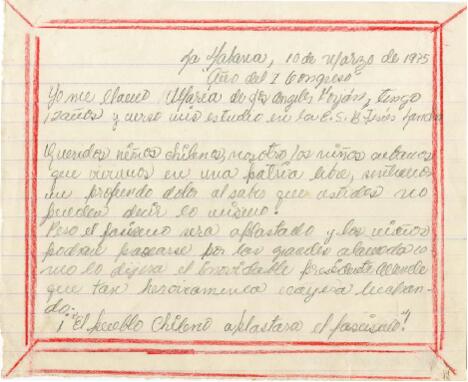 La Habana, 10 de Marzo de 1975
"Año del I Congreso"
Yo me llamo María de los Angeles, tengo
años y curso mis estudio en la E.S.B Jesús
Queridos niños chilenos, nosotro los niños cubanos
que vivimos en una patria libe, sentimos
un profundo dolor al saber que ustedes no
pueden decir lo mismo.
Pero el facismo sera aplastado y los niños
podran pasearse por las grandes alameda co
mo lo dijera el inolvidable presidente Allende
que tan heroicamente cayera luchan
do.
¡"El pueblo Chileno aplastara el fascismo"!